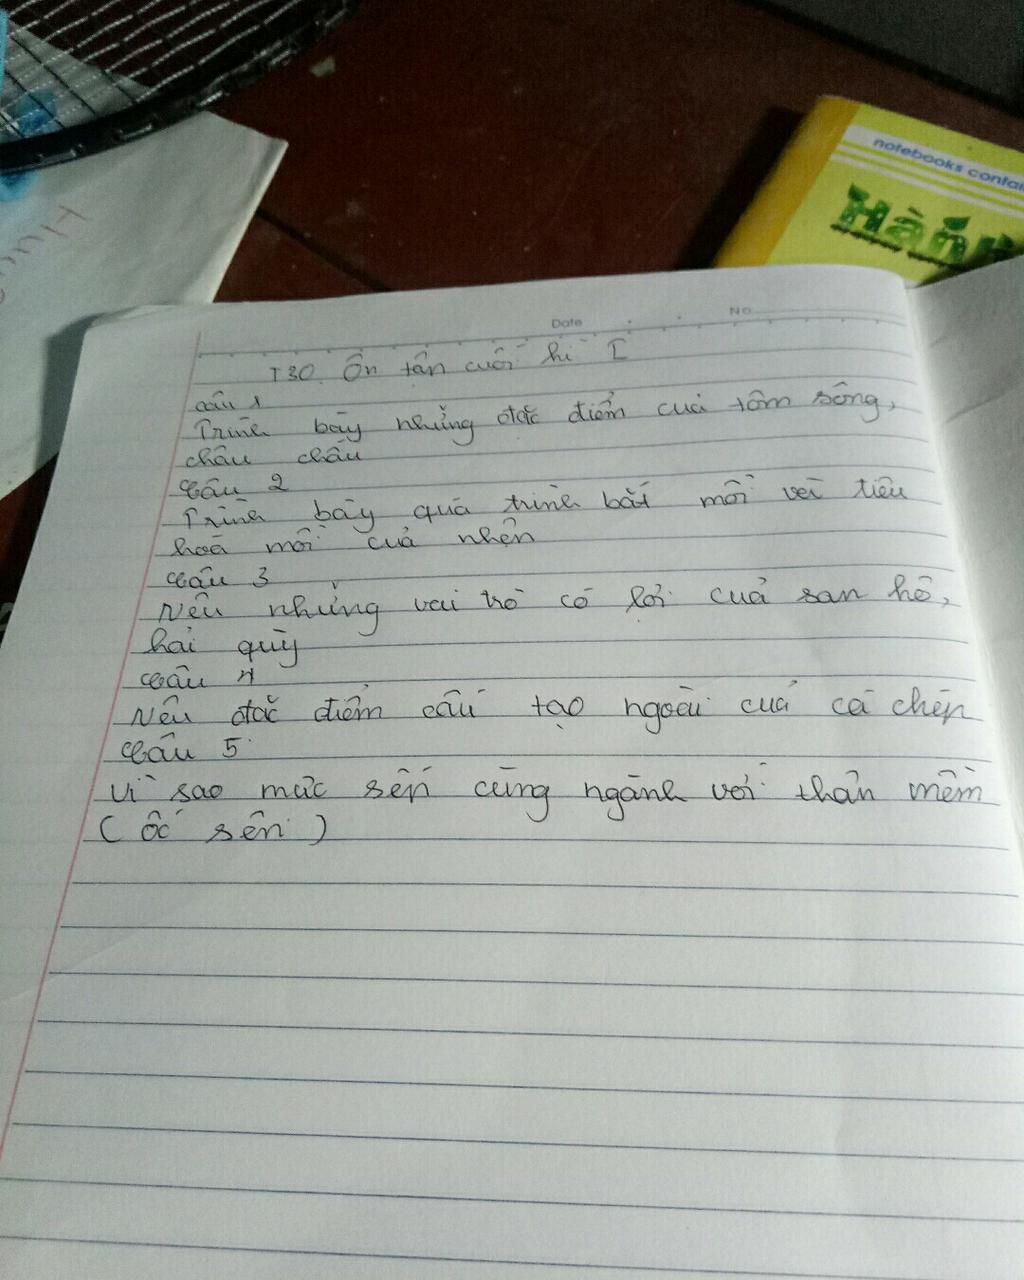 notebooks contai
Hàn
Date
No
T30. Ôn tận cuối kì I
câu 1
Trình bày những đặc điểm của tôm sông,
châu chấu
câu 2
Trình bày quá trình bắt mồi và tiêu
hoá mồi của nhện
câu 3
Nêu những vai trò có lợi của san hô,
hải quỳ
câu 4
Nêu đặc điểm cấu tạo ngoài của cá chép
câu 5
Vì sao mực sến cùng ngành với thân mềm
(ốc sên)